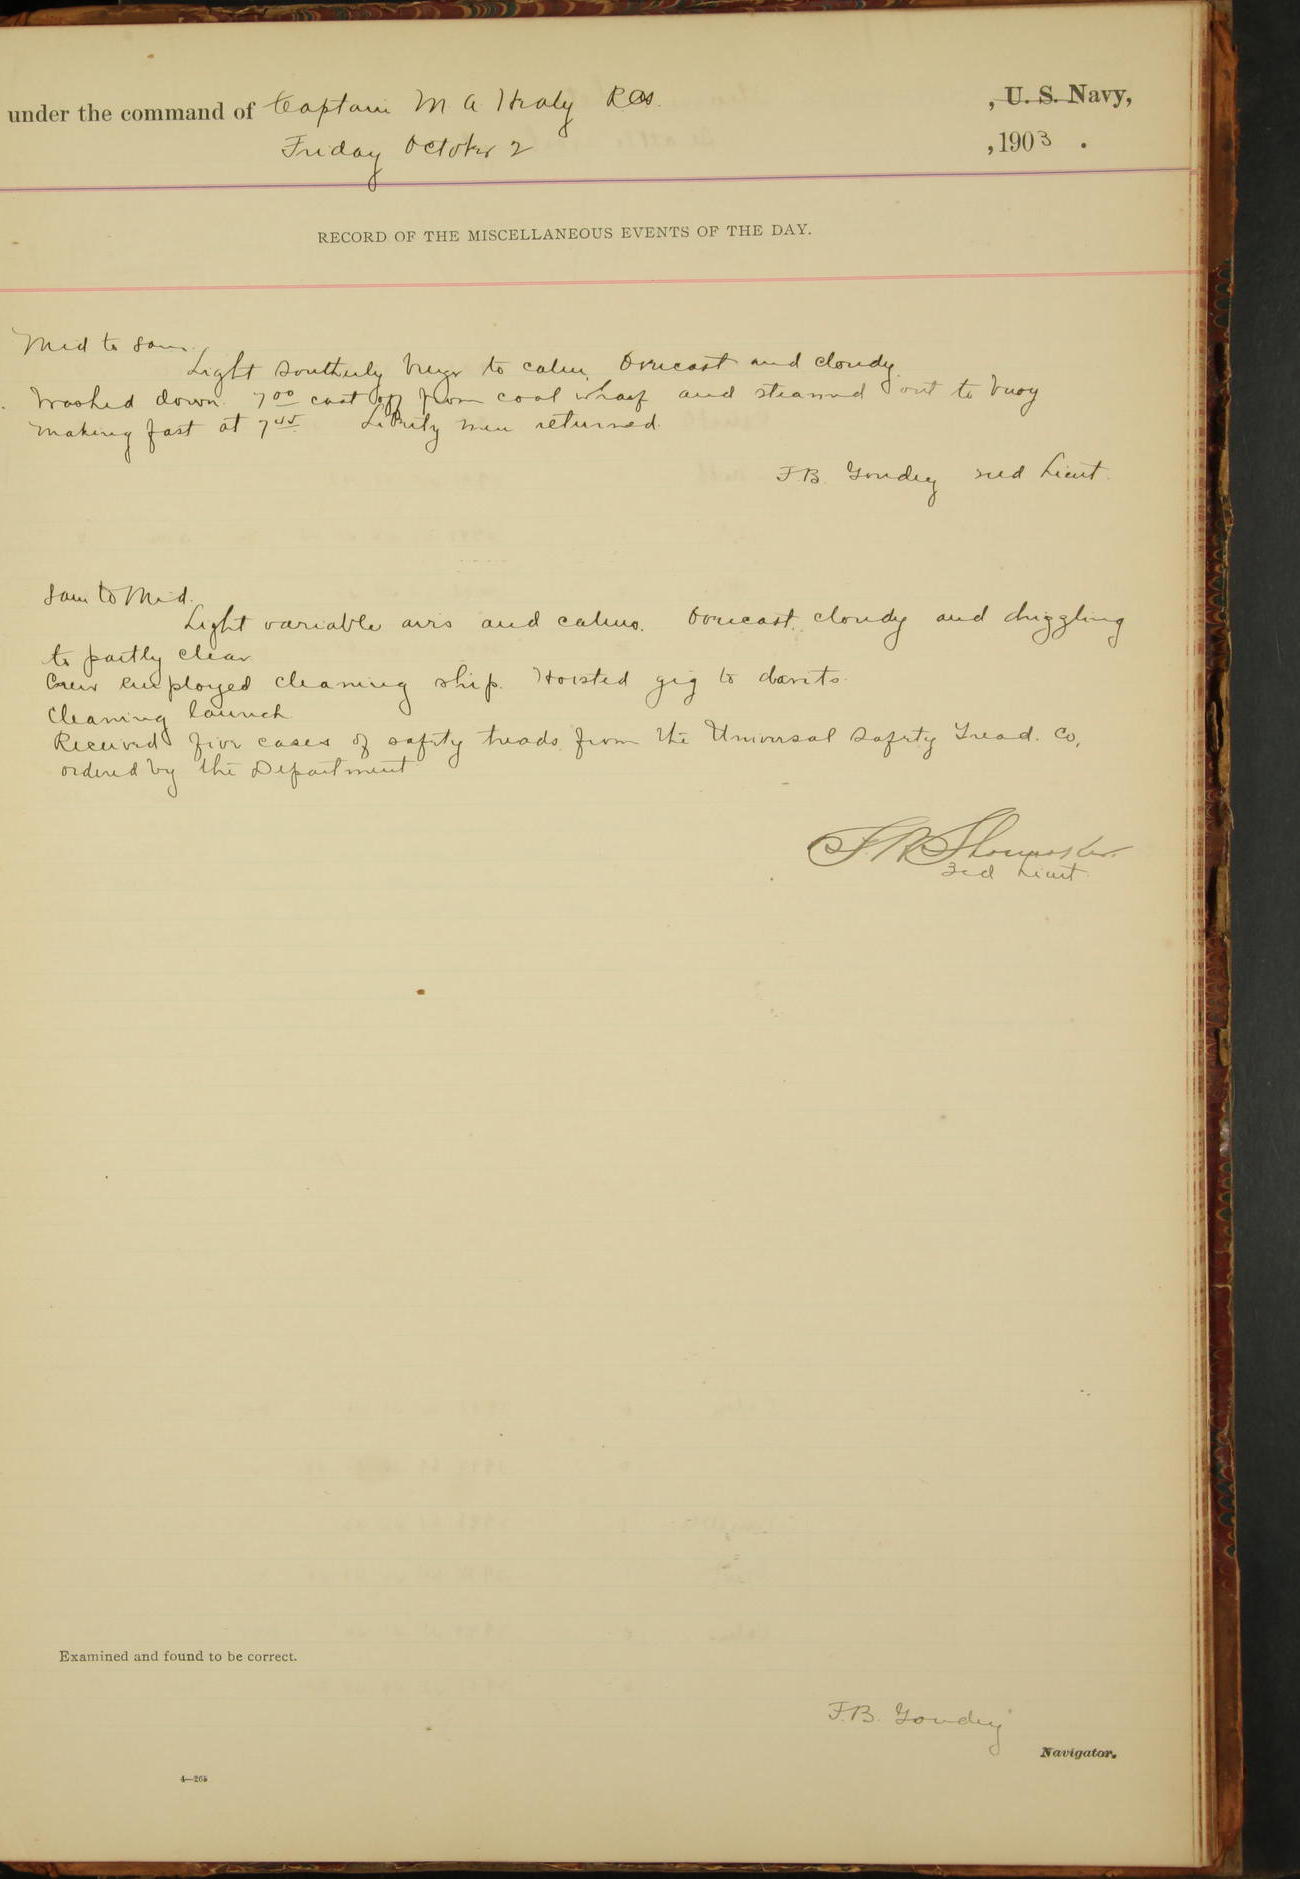 under the command of Captain M A Healy RCS. , U. S. Navy,
Friday October 2 , 1903 .
RECORD OF THE MISCELLANEOUS EVENTS OF THE DAY.
Mid to 8am.
Light Southerly breeze to calm. Overcast and cloudy.
Washed down. 7 00 cast off from coal wharf and steamed out to buoy
making fast at 7 45 Liberty men returned.
F.B. Goudey 2nd Lieut.
8am to Mid.
Light variable airs and calms. Overcast, cloudy and drizzling
to partly clear
Crew employed cleaning ship. Hoisted gig to davits.
Cleaning launch
Received five cases of safety treads from the Universal Safety Tread. Co,
ordered by the Department
F.R. Shoemaker
3rd Lieut.
Examined and found to be correct.
F.B. Goudey
Navigator.
4—265